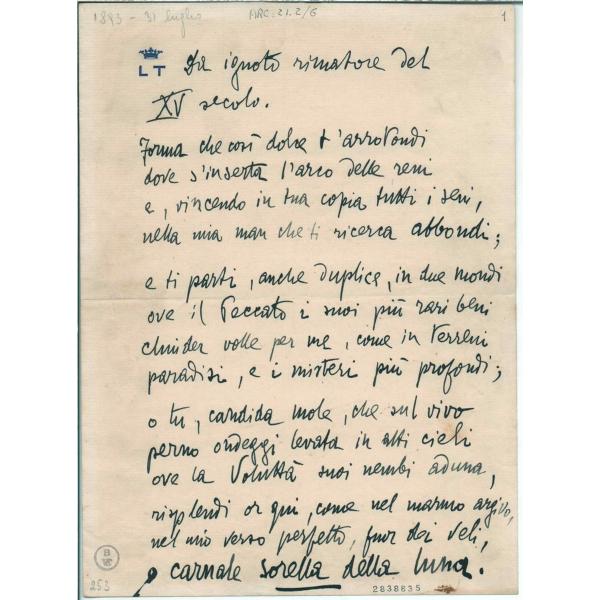 1893 - 31 luglio
ARC. 21.2/6
1
LT
Da ignoto rimatore del
XV secolo.
Forma che così dolce t'arrotondi
dove s'inserta l'arco delle reni
e, vincendo in tua copia tutti i seni,
nella mia man che ti ricerca abbondi;
e ti parti, anche duplice, in due mondi
ove il Peccato i suoi più rari beni
chiuder volle per me, come in terreni
paradisi, e i misteri più profondi;
o tu, candida mole, che sul vivo
perno ondeggi levata in alti cieli
ove la Voluttà suoi nembi aduna,
risplendi or qui, come nel marmo argivo,
nel mio verso perfetto, fuor dei veli,
o carnale sorella della luna.
253
2838635